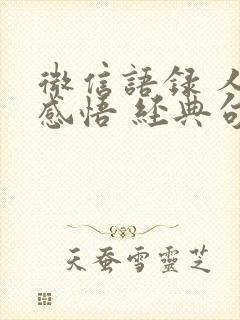 微信語録 人
感悟 經典句
天蚕雪靈芝